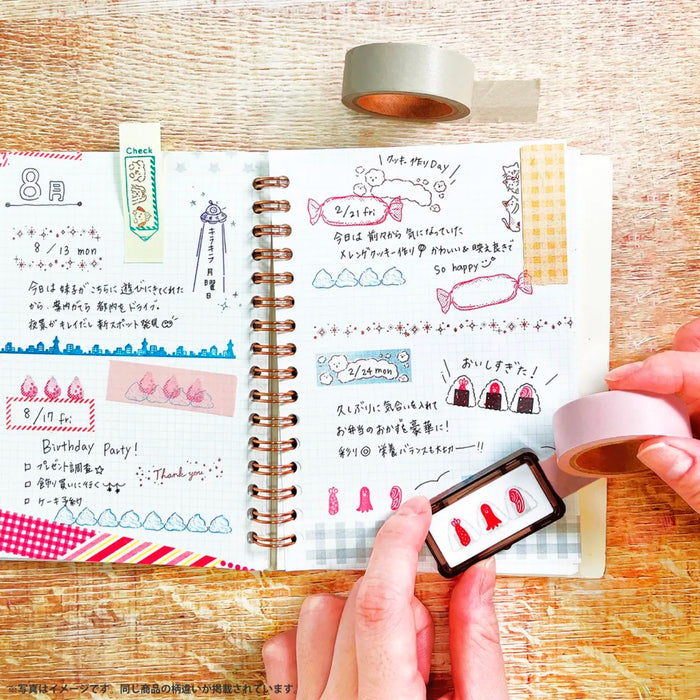 Check
8月
8/13 mon
今日は妹子がこちらに遊びにきてくれた
から、案内がてら都内をドライブ。
夜景がキレイだし新スポット発見
キラキラ月曜日
8/17 fri
Birthday Party!
□ プレゼント調査☆
□ 飾り買いに行く
□ ケーキ予約
Thank you
クッキー作りDay
2/21 fri
今日は前々から気になっていた
メレンゲクッキー作り かわいい&映え良きで
so happy
2/24 mon
おいしすぎた!
久しぶりに気合いを入れて
お弁当のおかずを豪華に!
彩り◎ 栄養バランスも大切ーー!!
※写真はイメージです。同じ商品の柄違いが掲載されています。